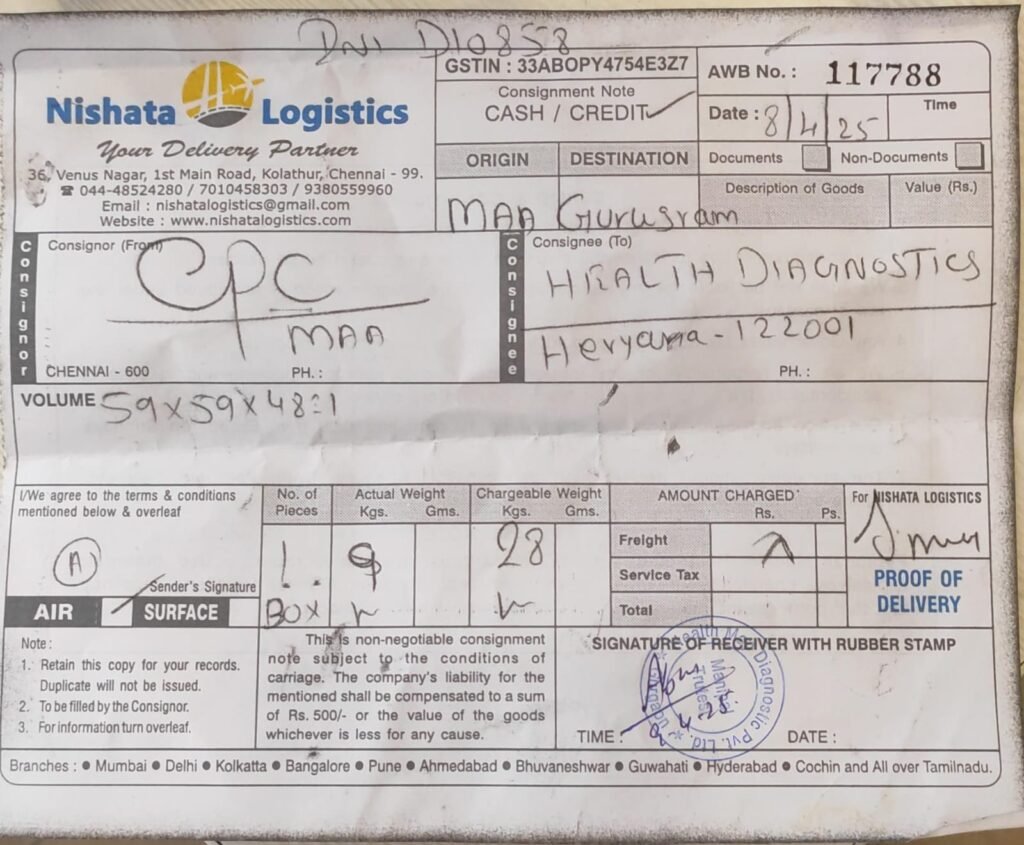 DNI D10858
Nishata Logistics
Your Delivery Partner
36, Venus Nagar, 1st Main Road, Kolathur, Chennai - 99.
☎ 044-48524280 / 7010458303 / 9380559960
Email : nishatalogistics@gmail.com
Website : www.nishatalogistics.com
GSTIN : 33ABOPY4754E3Z7
Consignment Note
CASH / CREDIT
AWB No. : 117788
Date : 8/4/25
Time
ORIGIN DESTINATION
MAA Gurugram
Documents Non-Documents
Description of Goods Value (Rs.)
Consignor
Consignor (From)
CPC
MAA
CHENNAI - 600 PH. :
Consignee
Consignee (To)
HEALTH DIAGNOSTICS
Heryana - 122001
PH. :
VOLUME 59x59x48=1
I/We agree to the terms & conditions
mentioned below & overleaf
A
Sender's Signature
AIR SURFACE
No. of Pieces
1
BOX
Actual Weight
Kgs. Gms.
9
Chargeable Weight
Kgs. Gms.
28
AMOUNT CHARGED
Rs. Ps.
Freight
Service Tax
Total
For NISHATA LOGISTICS
PROOF OF
DELIVERY
Note :
1. Retain this copy for your records.
Duplicate will not be issued.
2. To be filled by the Consignor.
3. For information turn overleaf.
This is non-negotiable consignment
note subject to the conditions of
carriage. The company's liability for the
mentioned shall be compensated to a sum
of Rs. 500/- or the value of the goods
whichever is less for any cause.
SIGNATURE OF RECEIVER WITH RUBBER STAMP
Diagnostic Pvt. Ltd.
Manipal
4-25
TIME : DATE :
Branches : ● Mumbai ● Delhi ● Kolkatta ● Bangalore ● Pune ● Ahmedabad ● Bhuvaneshwar ● Guwahati ● Hyderabad ● Cochin and All over Tamilnadu.